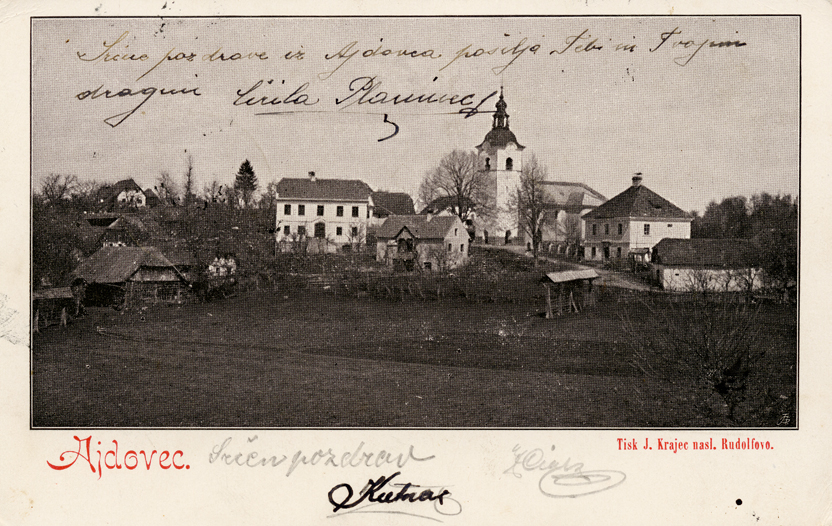 Srčne pozdrave iz Ajdovca pošilja Tebi in Tvojim
dragim Cirila Planinec
Ajdovec.
Tisk J. Krajec nasl. Rudolfovo.
Srčen pozdrav